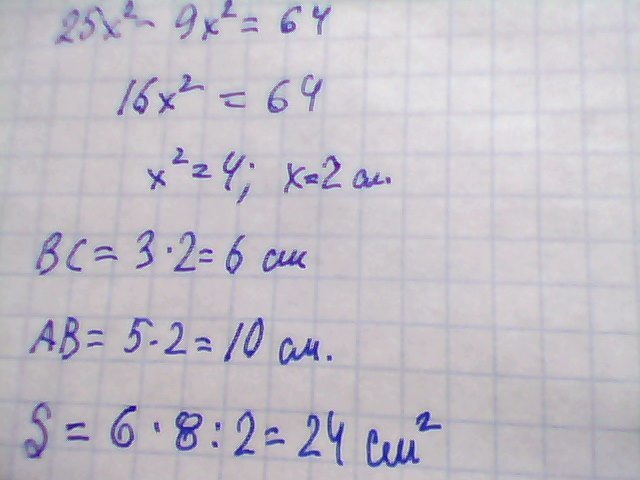 25x² - 9x² = 64
16x² = 64
x² = 4; x = 2 см.
BC = 3 · 2 = 6 см
AB = 5 · 2 = 10 см.
S = 6 · 8 : 2 = 24 см²